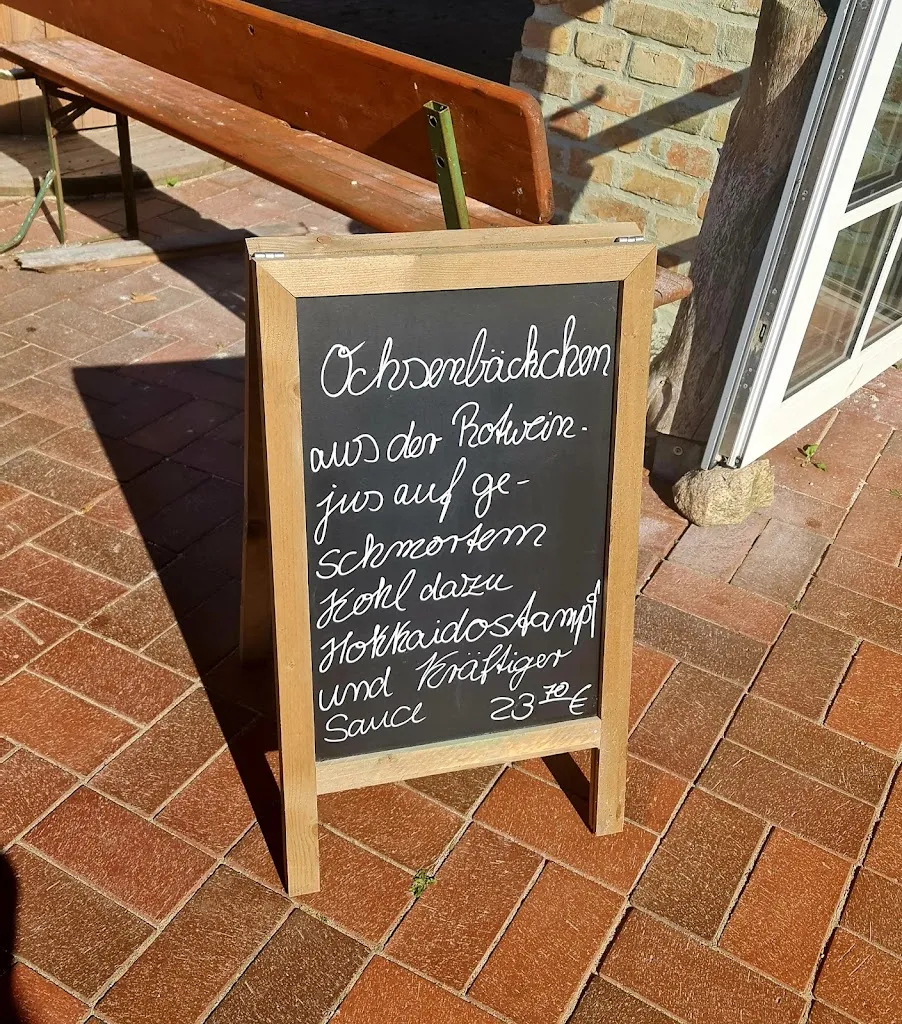 Ochsenbäckchen
aus der Rotwein-
jus auf ge-
schmortem
Kohl dazu
Hokkaidostampf
und Kräftiger
Sauce 23 70 €